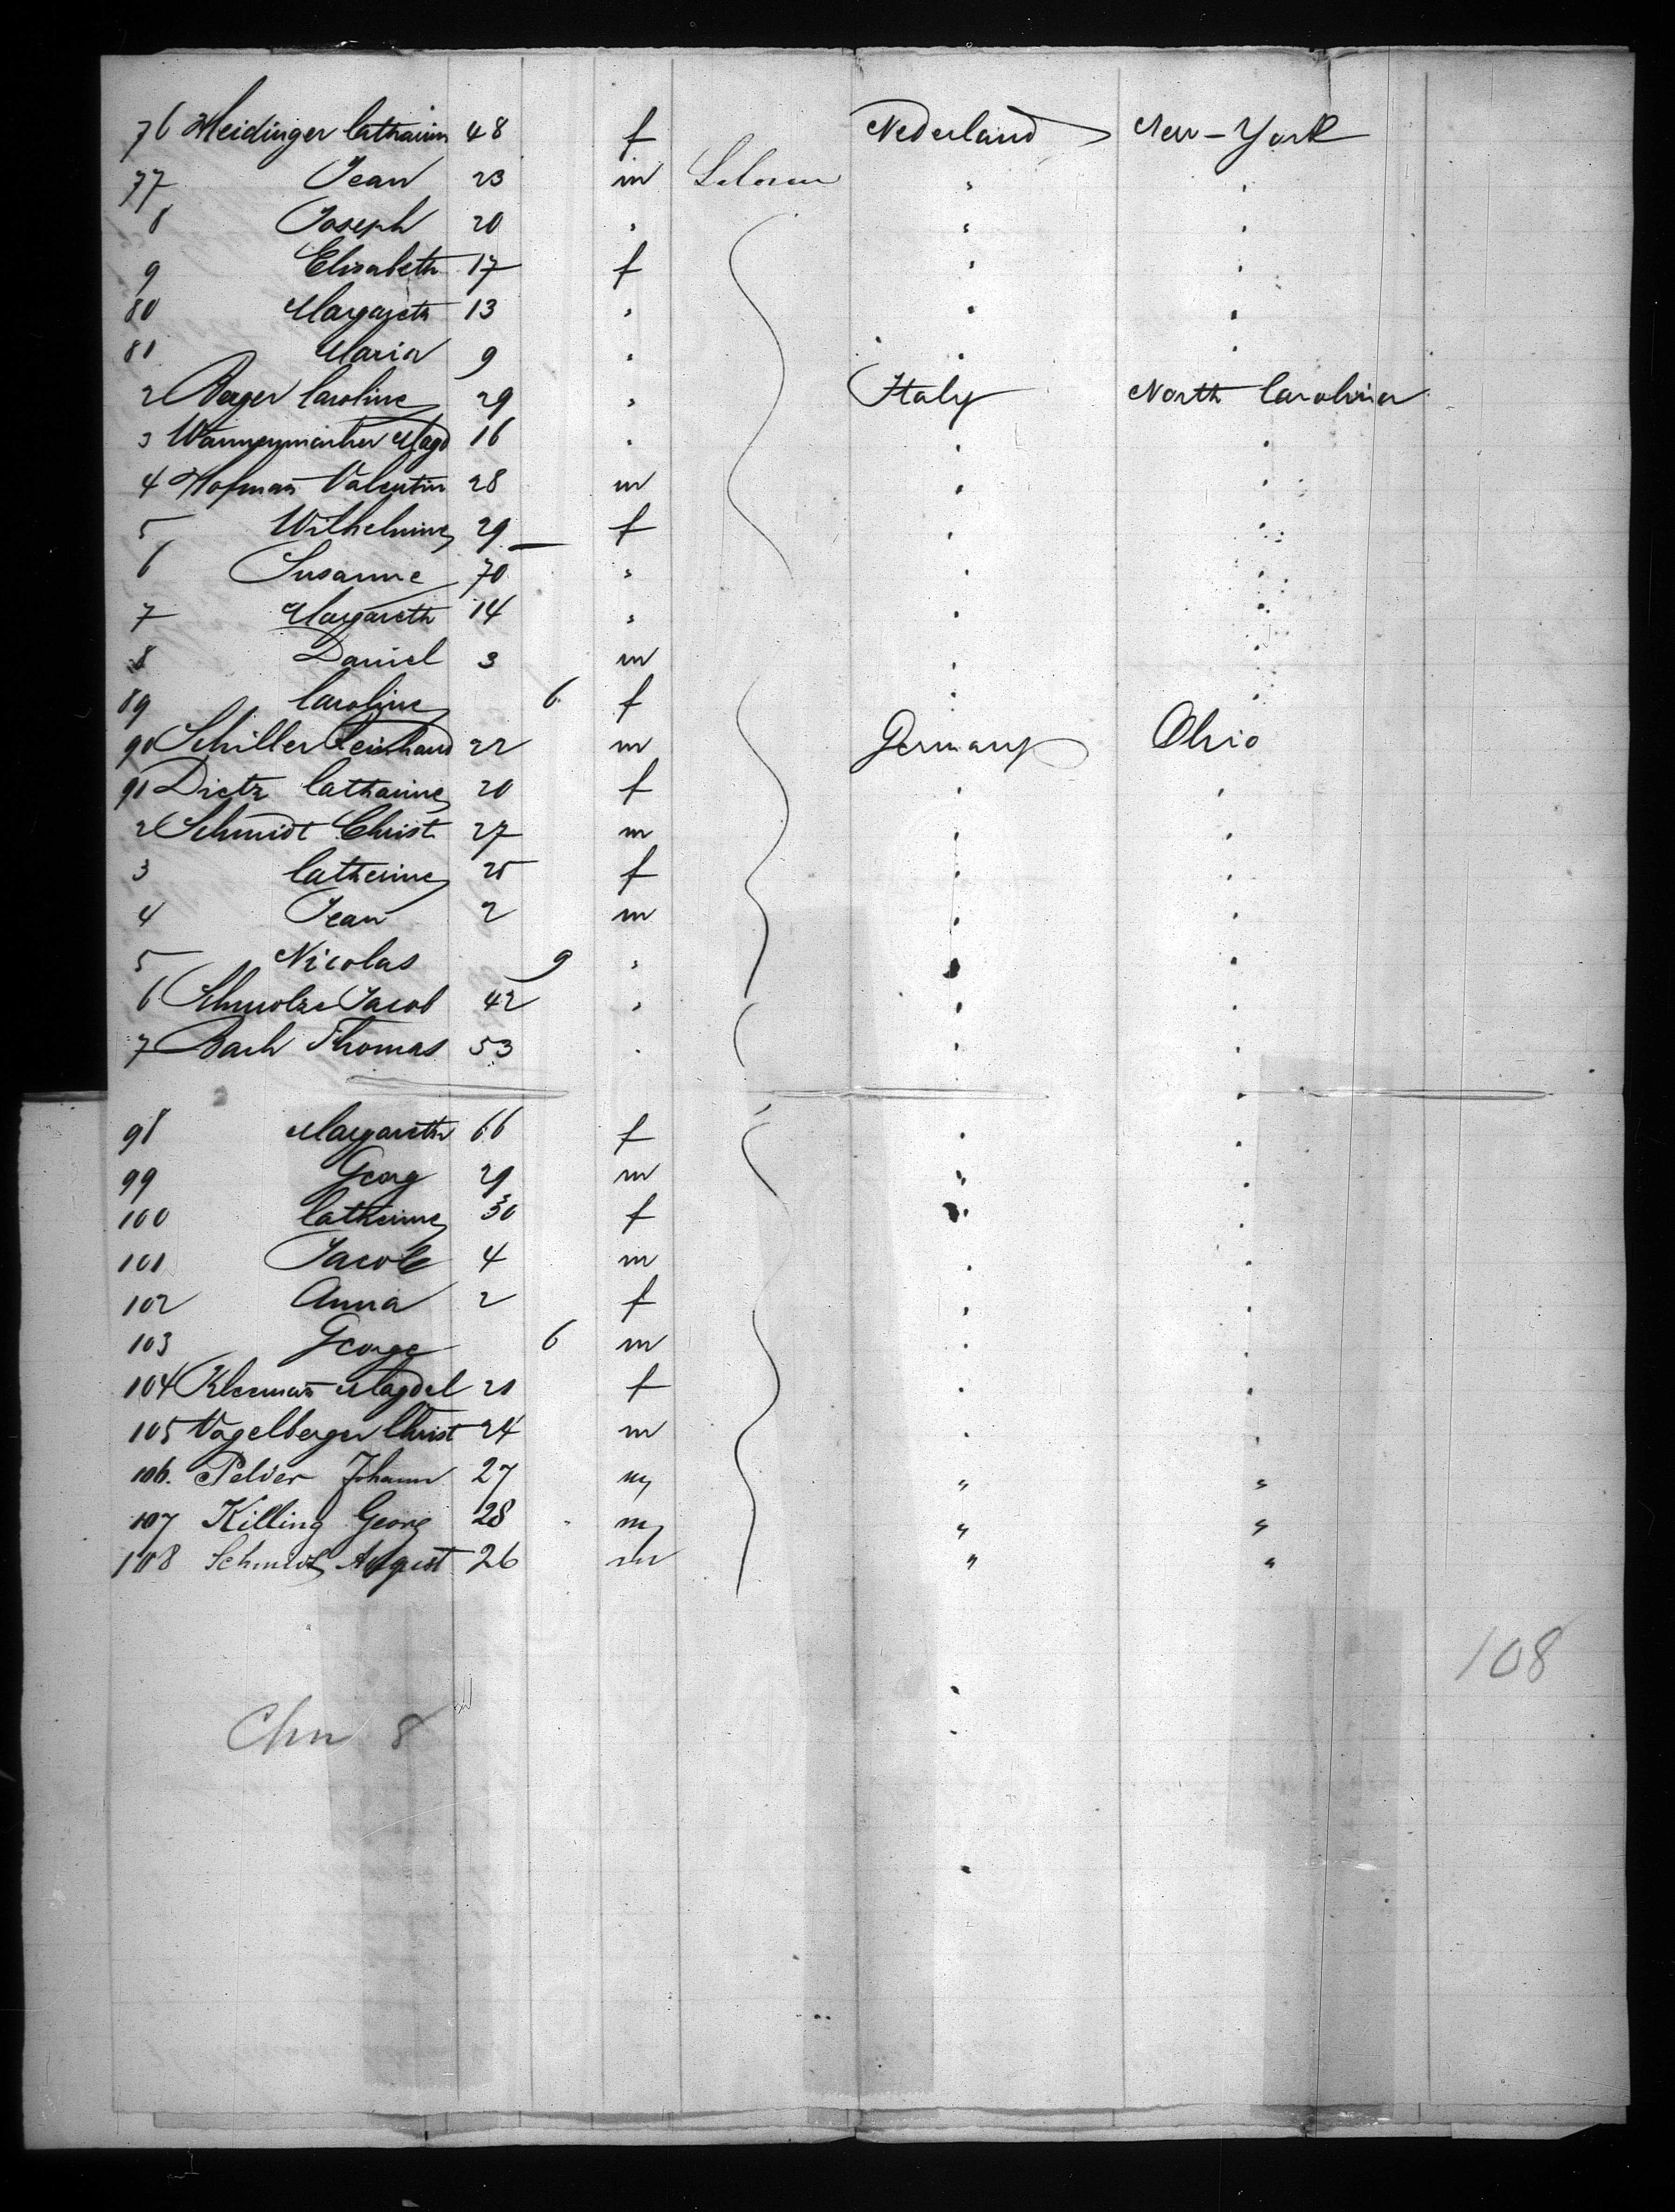 76 Heidinger Catharina 48 f Nederland New-York
77 Jean 23 m Laborer " "
8 Joseph 20 " " "
9 Elisabeth 17 f " "
80 Margareth 13 " " "
81 Maria 9 " " "
2 Berger Caroline 29 " Italy North Carolina
3 Wannenmacher Magd 16 " " "
4 Hofman̄ Valentin 28 m " "
5 Wilhelmine 29 f " "
6 Susanne 70 " " "
7 Margareth 14 " " "
8 Daniel 3 m " "
89 Caroline 6 f " "
90 Schiller Reinhard 22 m Germany Ohio
91 Dietz Catharine 20 f " "
2 Schmidt Christ 27 m " "
3 Catherine 25 f " "
4 Jean 2 m " "
5 Nicolas 9 " " "
6 Schmolze Jacob 42 " " "
7 Bach Thomas 53 " " "
98 Margareth 66 f " "
99 Georg 29 m " "
100 Catherine 30 f " "
101 Jacob 4 m " "
102 Anna 2 f " "
103 George 6 m " "
104 Kleeman̄ Magdel 21 f " "
105 Vogelberger Christ 24 m " "
106. Johann 27 m " "
107 Killing Georg 28 m " "
108 Schmidt August 26 m " "
108
Chn 8